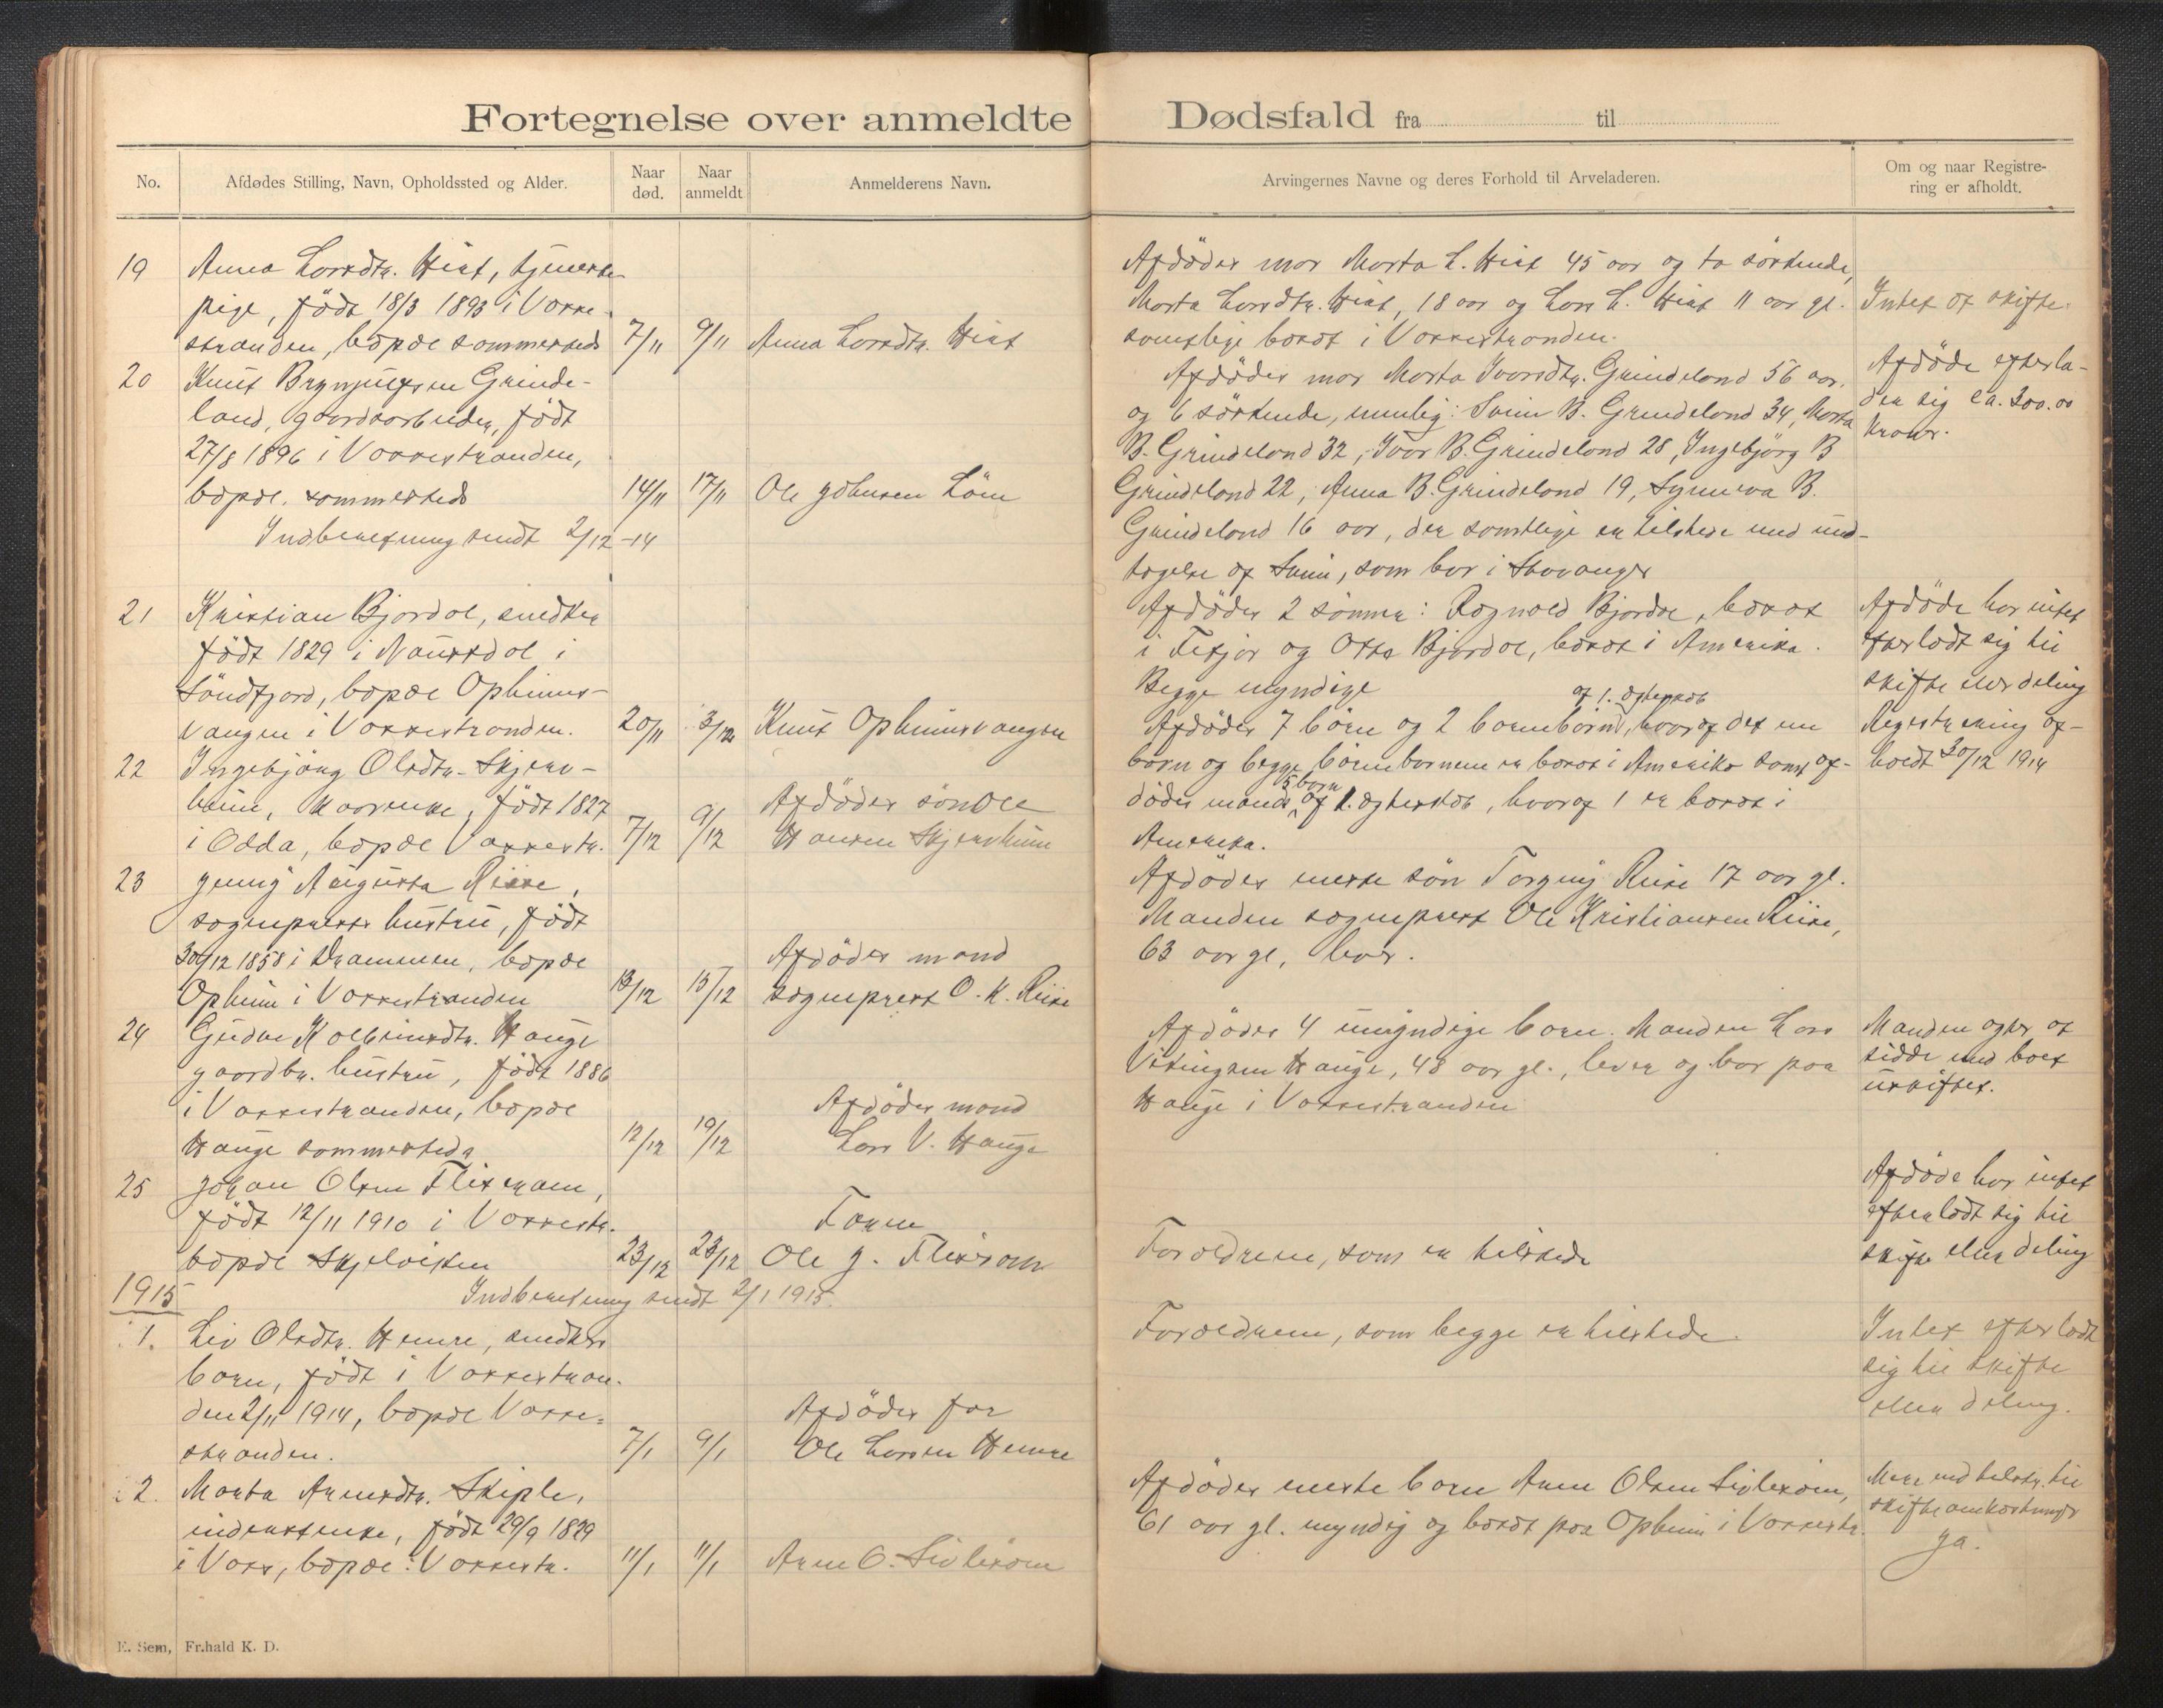 Fortegnelse over anmeldte Dødsfald fra til
No.
Afdødes Stilling, Navn, Opholdssted og Alder.
Naar død.
Naar anmeldt
Anmelderens Navn.
Arvingernes Navne og deres Forhold til Arveladeren.
Om og naar Registre-
ring er afholdt.
19 Anna Larsdtr. Hirt, tjeneste-
pige, född 18/3 1893 i Vosse-
stranden, bopæl sammesteds 7/11 9/11 Anna Larsdtr. Hirt
Afdödes mor Marta L. Hirt 45 aar og to söskende,
Marta Larsdtr. Hirt, 18 aar og Lars L. Hirt 11 aar gl.
samtlige bosat i Vossestranden.
Intet at skifte.
20 Knut Brynjulfsen Grinde-
land, gaardsarbeider, födt
27/8 1896 i Vossestranden,
bopæl sammesteds 14/11 17/11 Ole Johnsen Löne
Indberetning sendt 2/12-14
Afdödes mor Marta Ivarsdtr. Grindeland 56 aar.
og 6 söskende, nemlig: Svein B. Grindeland 34, Marta
B. Grindeland 32, Ivar B. Grindeland 28, Ingebjörg B
Grindeland 22, Anna B. Grindeland 19, Synneva B.
Grindeland 16 aar, der samtlige er tilstede med und-
tagelse af Svein, som bor i Stavanger
Afdöde efterla-
der sig ca. 300.00
kroner.
21 Kristian Bjordal, snedker
födt 1829 i Naustdal i
Söndfjord, bopæl Opheims-
vangen i Vossestranden. 20/11 3/12 Knut Opheimsvangen
Afdödes 2 sönner: Ragnvald Bjordal, bosat
i Fesjor og Otto Bjordal, bosat i Amerika.
Begge myndige
Afdöde har intet
efterladt sig til
skifte eller deling
22 Ingebjörg Olsdtr. Skjerv-
heim, kaarenke, födt 1827
i Odda, bopæl Vossestr. 7/12 9/12 Afdödes sön Ole
Hansen Skjervheim
af 1. ægteskab
Afdödes 7 börn og 2 barnebörn, hvoraf det ene
barn og begge börnebornene er bosat i Amerika samt af-
5 born
dödes mands af 1. ægteskab, hvoraf 1 er bosat i
Amerika.
Registrering af-
holdt 30/12 1914
23 Jenny Augusta Riise,
sogneprests hustru, födt
30/12 1858 i Drammen, bopæl
Opheim i Vossestranden 13/12 15/12 Afdödes mand
sogneprest O. K. Riise
Afdödes eneste sön Torgny Riise 17 aar gl.
Manden sogneprest Ole Kristiansen Riise,
63 aar gl, lever.
24 Gudve Kolbeinsdtr. Hauge
gaardbr. hustru, födt 1886
i Vossestranden, bopæl
Hauge sammesteds 12/12 19/12 Afdödes mand
Lars V. Hauge
Afdödes 4 umyndige born. Manden Lars
Vikingsen Hauge, 48 aar gl., lever og bor paa
Hauge i Vossestranden
Manden agter at
sidde med boet
uskiftet.
25 Johan Olsen Flisram,
födt 12/11 1910 i Vossestr.
bopæl Skjelviken 23/12 23/12 Faren
Ole J. Flisram
Forældrene, som er tilstede
Afdöde har intet
efterladt sig til
skifte eller deling
Indberetning sendt 2/1 1915.
1915
1. Liv Olsdtr. Hemre, snedkers
barn, födt i Vossestran-
den 2/11 1914, bopæl Vosse-
stranden. 7/1 9/1 Afdödes far
Ole Larsen Hemre
Forældrene, som begge er tilstede.
Intet efterladt
sig til skifte
eller deling.
2. Marta Arnesdtr. Skiple,
inderstenke, födt 29/9 1829
i Voss, bopæl: Vossestr. 11/1 11/1 Arne O. Sivlesöen
Afdödes eneste barn Arne Olsen Sivlesöen,
61 aar gl. myndig og bosat paa Opheim i Vossestr.
Mere end tilstr. til
skifteomkostninger
Ja.
E. Sem, Fr.hald K. D.